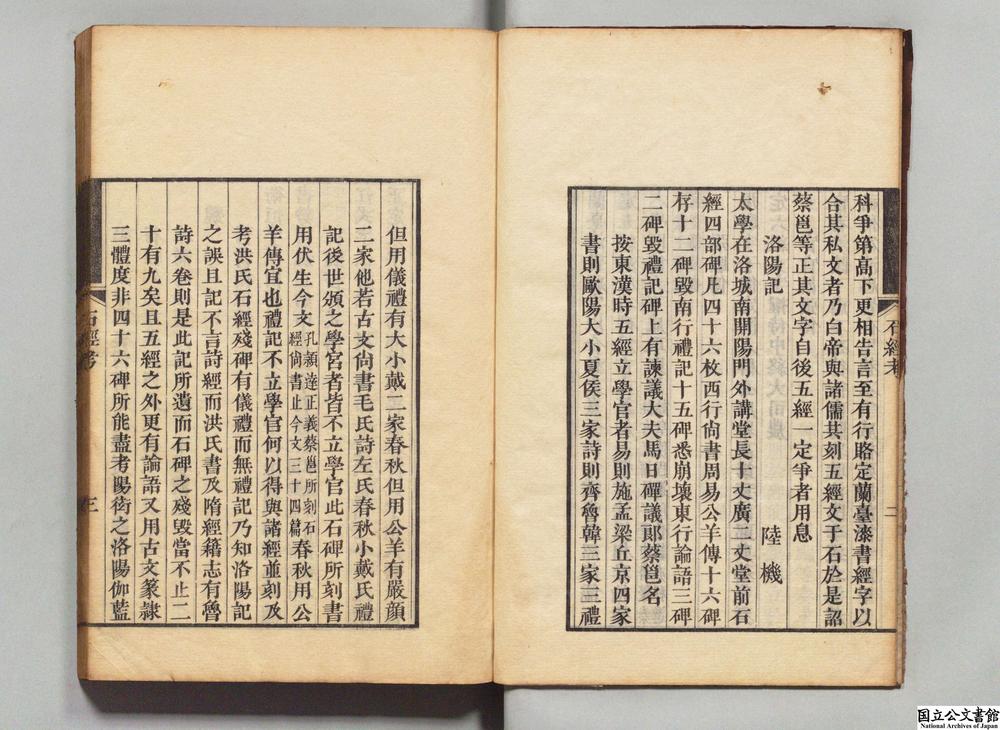 科爭第高下更相告言至有行賂定蘭臺漆書經字以
合其私文者乃白帝與諸儒共刻五經文于石於是詔
蔡邕等正其文字自後五經一定爭者用息
洛陽記　陸機
太學在洛城南開陽門外講堂長十丈廣三丈堂前石
經四部碑凡四十六枚西行尙書周易公羊傳十六碑
存十二碑毀南行禮記十五碑悉崩壞東行論語三碑
二碑毀禮記碑上有諫議大夫馬日磾議郎蔡邕名
按東漢時五經立學官者易則施孟梁丘京四家
書則歐陽大小夏侯三家詩則齊魯韓三家三禮
石經考
二
但用儀禮有大小戴二家春秋但用公羊有嚴顏
二家他若古文尙書毛氏詩左氏春秋小戴氏禮
記後世頒之學宮者皆不立學官此石碑所刻書
用伏生今文孔穎達正義蔡邕所刻石經尙書止今文三十四篇春秋用公
羊傳宜也禮記不立學官何以得與諸經並刻及
考洪氏石經殘碑有儀禮而無禮記乃知洛陽記
之誤且記不言詩經而洪氏書及隋經籍志有魯
詩六卷則是此記所遺而石碑之殘毀當不止二
十有九矣且五經之外更有論語又用古文篆隸
三體度非四十六碑所能盡考陽衒之洛陽伽藍
石經考
三
国立公文書館
National Archives of Japan